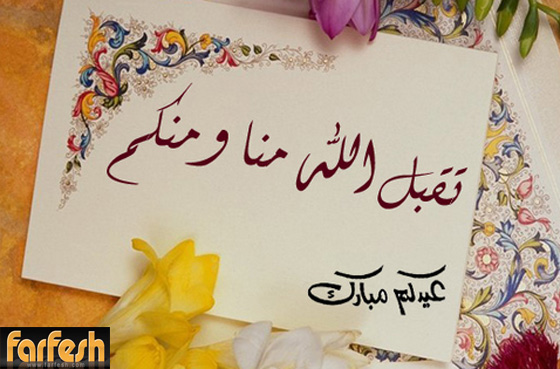 تقبل الله منا ومنكم
عيدكم مبارك
farfesh
www.farfesh.com